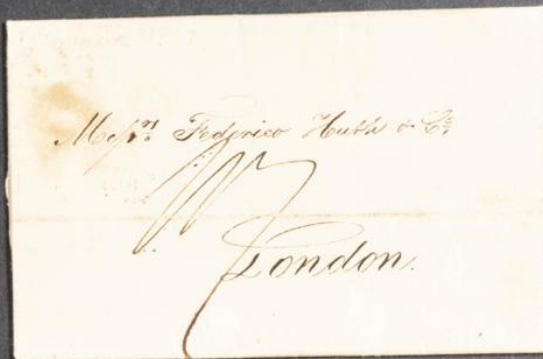 Messrs Federico Huth & Co
London.